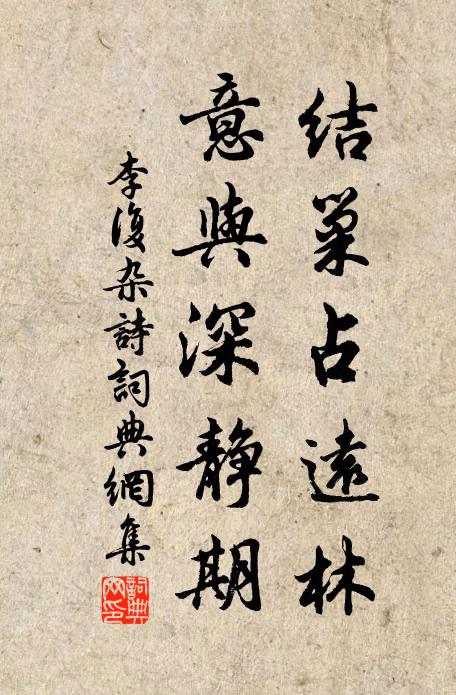 結巢占遠林
意與深静期
李復杂詩詞典網集
詞典網印